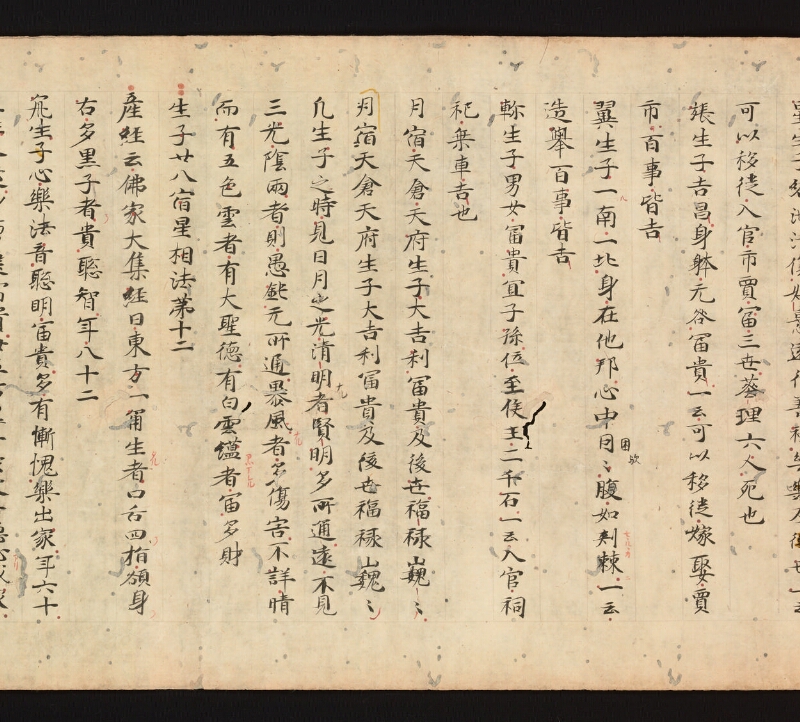 可以移徙入官市買冨三世葬埋六人死也
張生子吉昌身躰无咎冨貴一云可以移徙嫁娶買
市百事皆吉
翼生子一南一北身在他邦心中因〻腹如刾棘一云
困歟
造舉百事皆吉
軫生子男女冨貴宜子孫位至侯王二千石一云入官祠
祀乗車吉也
月宿天倉天府生子大吉利冨貴及後世福禄巍〻
月宿天倉天府生子大吉利冨貴及後世福禄巍〻
凢生子之時見日月之光清明者賢明多所通遠不見
三光陰雨者則愚無所通暴風者多傷害不詳晴
而有五色雲者有大聖徳有白雲緼者冨多財
生子廿八宿星相法第十二
産經云佛家大集經曰東方一角生者口舌四指額身
右多黒子者貴聡智年八十二
亢生子心樂法音聡明冨貴多有慚愧樂出家年六十